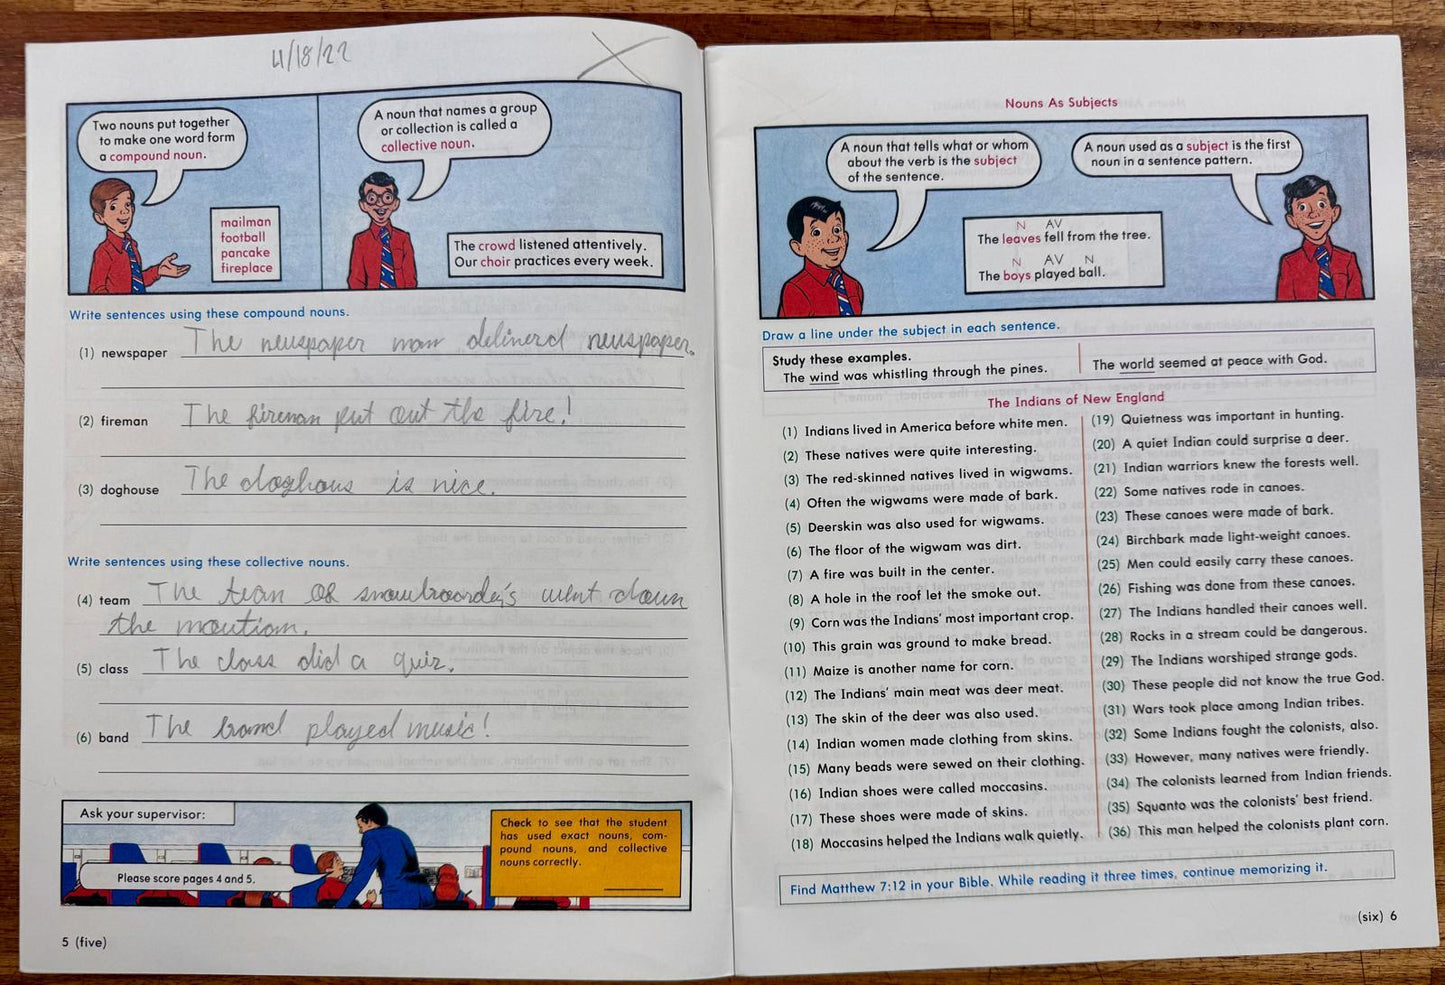 4/18/22
Two nouns put together
to make one word form
a compound noun.
mailman
football
pancake
fireplace
A noun that names a group
or collection is called a
collective noun.
The crowd listened attentively.
Our choir practices every week.
Write sentences using these compound nouns.
(1) newspaper The newspaper man delinerd newspaper.
(2) fireman The fireman put out the fire!
(3) doghouse The doghous is nice.
Write sentences using these collective nouns.
(4) team The team of snowboardes's went down
the moutiam.
(5) class The class did a quiz.
(6) band The band played music!
Ask your supervisor:
Please score pages 4 and 5.
Check to see that the student
has used exact nouns, com-
pound nouns, and collective
nouns correctly.
5 (five)
Nouns As Subjects
A noun that tells what or whom
about the verb is the subject
of the sentence.
A noun used as a subject is the first
noun in a sentence pattern.
N AV
The leaves fell from the tree.
N AV N
The boys played ball.
Draw a line under the subject in each sentence.
Study these examples.
The wind was whistling through the pines.
The world seemed at peace with God.
The Indians of New England
(1) Indians lived in America before white men.
(2) These natives were quite interesting.
(3) The red-skinned natives lived in wigwams.
(4) Often the wigwams were made of bark.
(5) Deerskin was also used for wigwams.
(6) The floor of the wigwam was dirt.
(7) A fire was built in the center.
(8) A hole in the roof let the smoke out.
(9) Corn was the Indians' most important crop.
(10) This grain was ground to make bread.
(11) Maize is another name for corn.
(12) The Indians' main meat was deer meat.
(13) The skin of the deer was also used.
(14) Indian women made clothing from skins.
(15) Many beads were sewed on their clothing.
(16) Indian shoes were called moccasins.
(17) These shoes were made of skins.
(18) Moccasins helped the Indians walk quietly.
(19) Quietness was important in hunting.
(20) A quiet Indian could surprise a deer.
(21) Indian warriors knew the forests well.
(22) Some natives rode in canoes.
(23) These canoes were made of bark.
(24) Birchbark made light-weight canoes.
(25) Men could easily carry these canoes.
(26) Fishing was done from these canoes.
(27) The Indians handled their canoes well.
(28) Rocks in a stream could be dangerous.
(29) The Indians worshiped strange gods.
(30) These people did not know the true God.
(31) Wars took place among Indian tribes.
(32) Some Indians fought the colonists, also.
(33) However, many natives were friendly.
(34) The colonists learned from Indian friends.
(35) Squanto was the colonists' best friend.
(36) This man helped the colonists plant corn.
Find Matthew 7:12 in your Bible. While reading it three times, continue memorizing it.
(six) 6